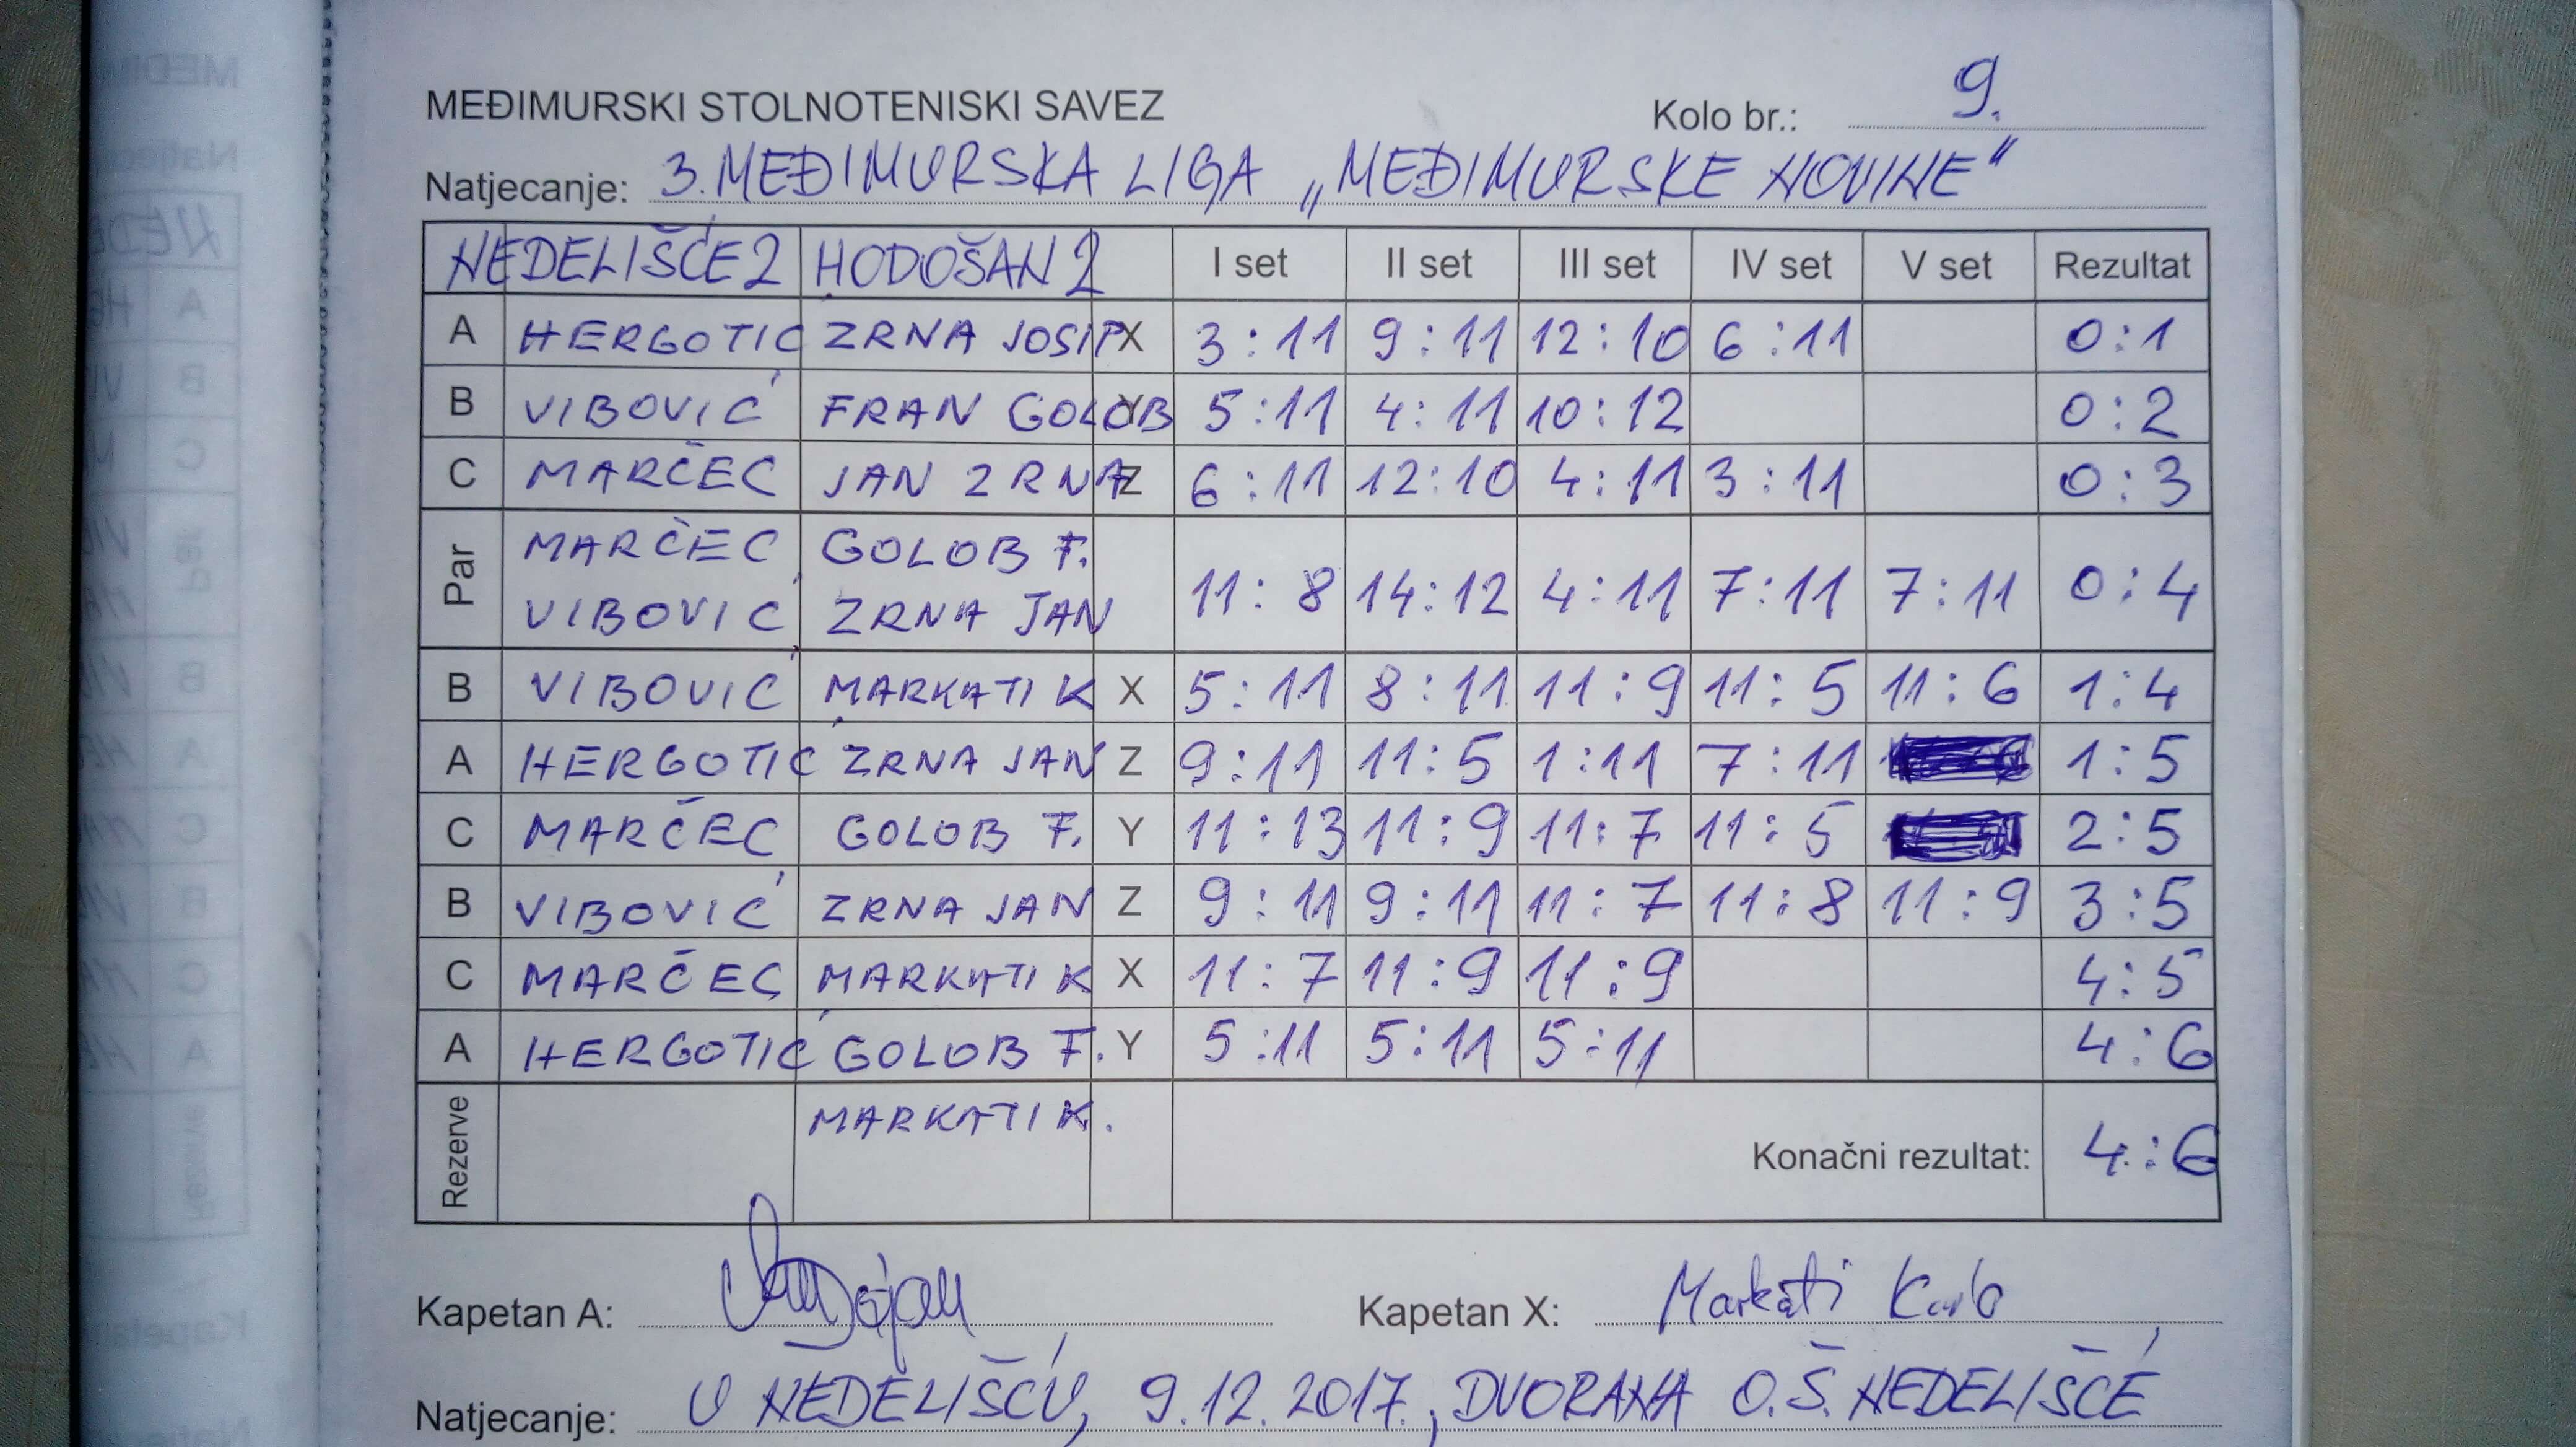 MEĐIMURSKI STOLNOTENISKI SAVEZ Kolo br.: 9.
Natjecanje: 3. MEĐIMURSKA LIGA „MEĐIMURSKE NOVINE"
NEDELIŠĆE 2 HODOŠAN 2 I set II set III set IV set V set Rezultat
A HERGOTIĆ ZRNA JOSIP X 3:11 9:11 12:10 6:11 0:1
B VIBOVIĆ FRAN GOLOB Y 5:11 4:11 10:12 0:2
C MARČEC JAN ZRNA Z 6:11 12:10 4:11 3:11 0:3
Par MARČEC GOLOB F.
VIBOVIĆ ZRNA JAN 11:8 14:12 4:11 7:11 7:11 0:4
B VIBOVIĆ MARKATI K X 5:11 8:11 11:9 11:5 11:6 1:4
A HERGOTIĆ ZRNA JAN Z 9:11 11:5 1:11 7:11 1:5
C MARČEC GOLOB F. Y 11:13 11:9 11:7 11:5 2:5
B VIBOVIĆ ZRNA JAN Z 9:11 9:11 11:7 11:8 11:9 3:5
C MARČEC MARKATI K X 11:7 11:9 11:9 4:5
A HERGOTIĆ GOLOB F. Y 5:11 5:11 5:11 4:6
Rezerve MARKATI K. Konačni rezultat: 4:6
Kapetan A: Kapetan X: Markati Karlo
Natjecanje: U NEDELIŠĆU, 9.12.2017., DVORANA O.Š. NEDELIŠĆE